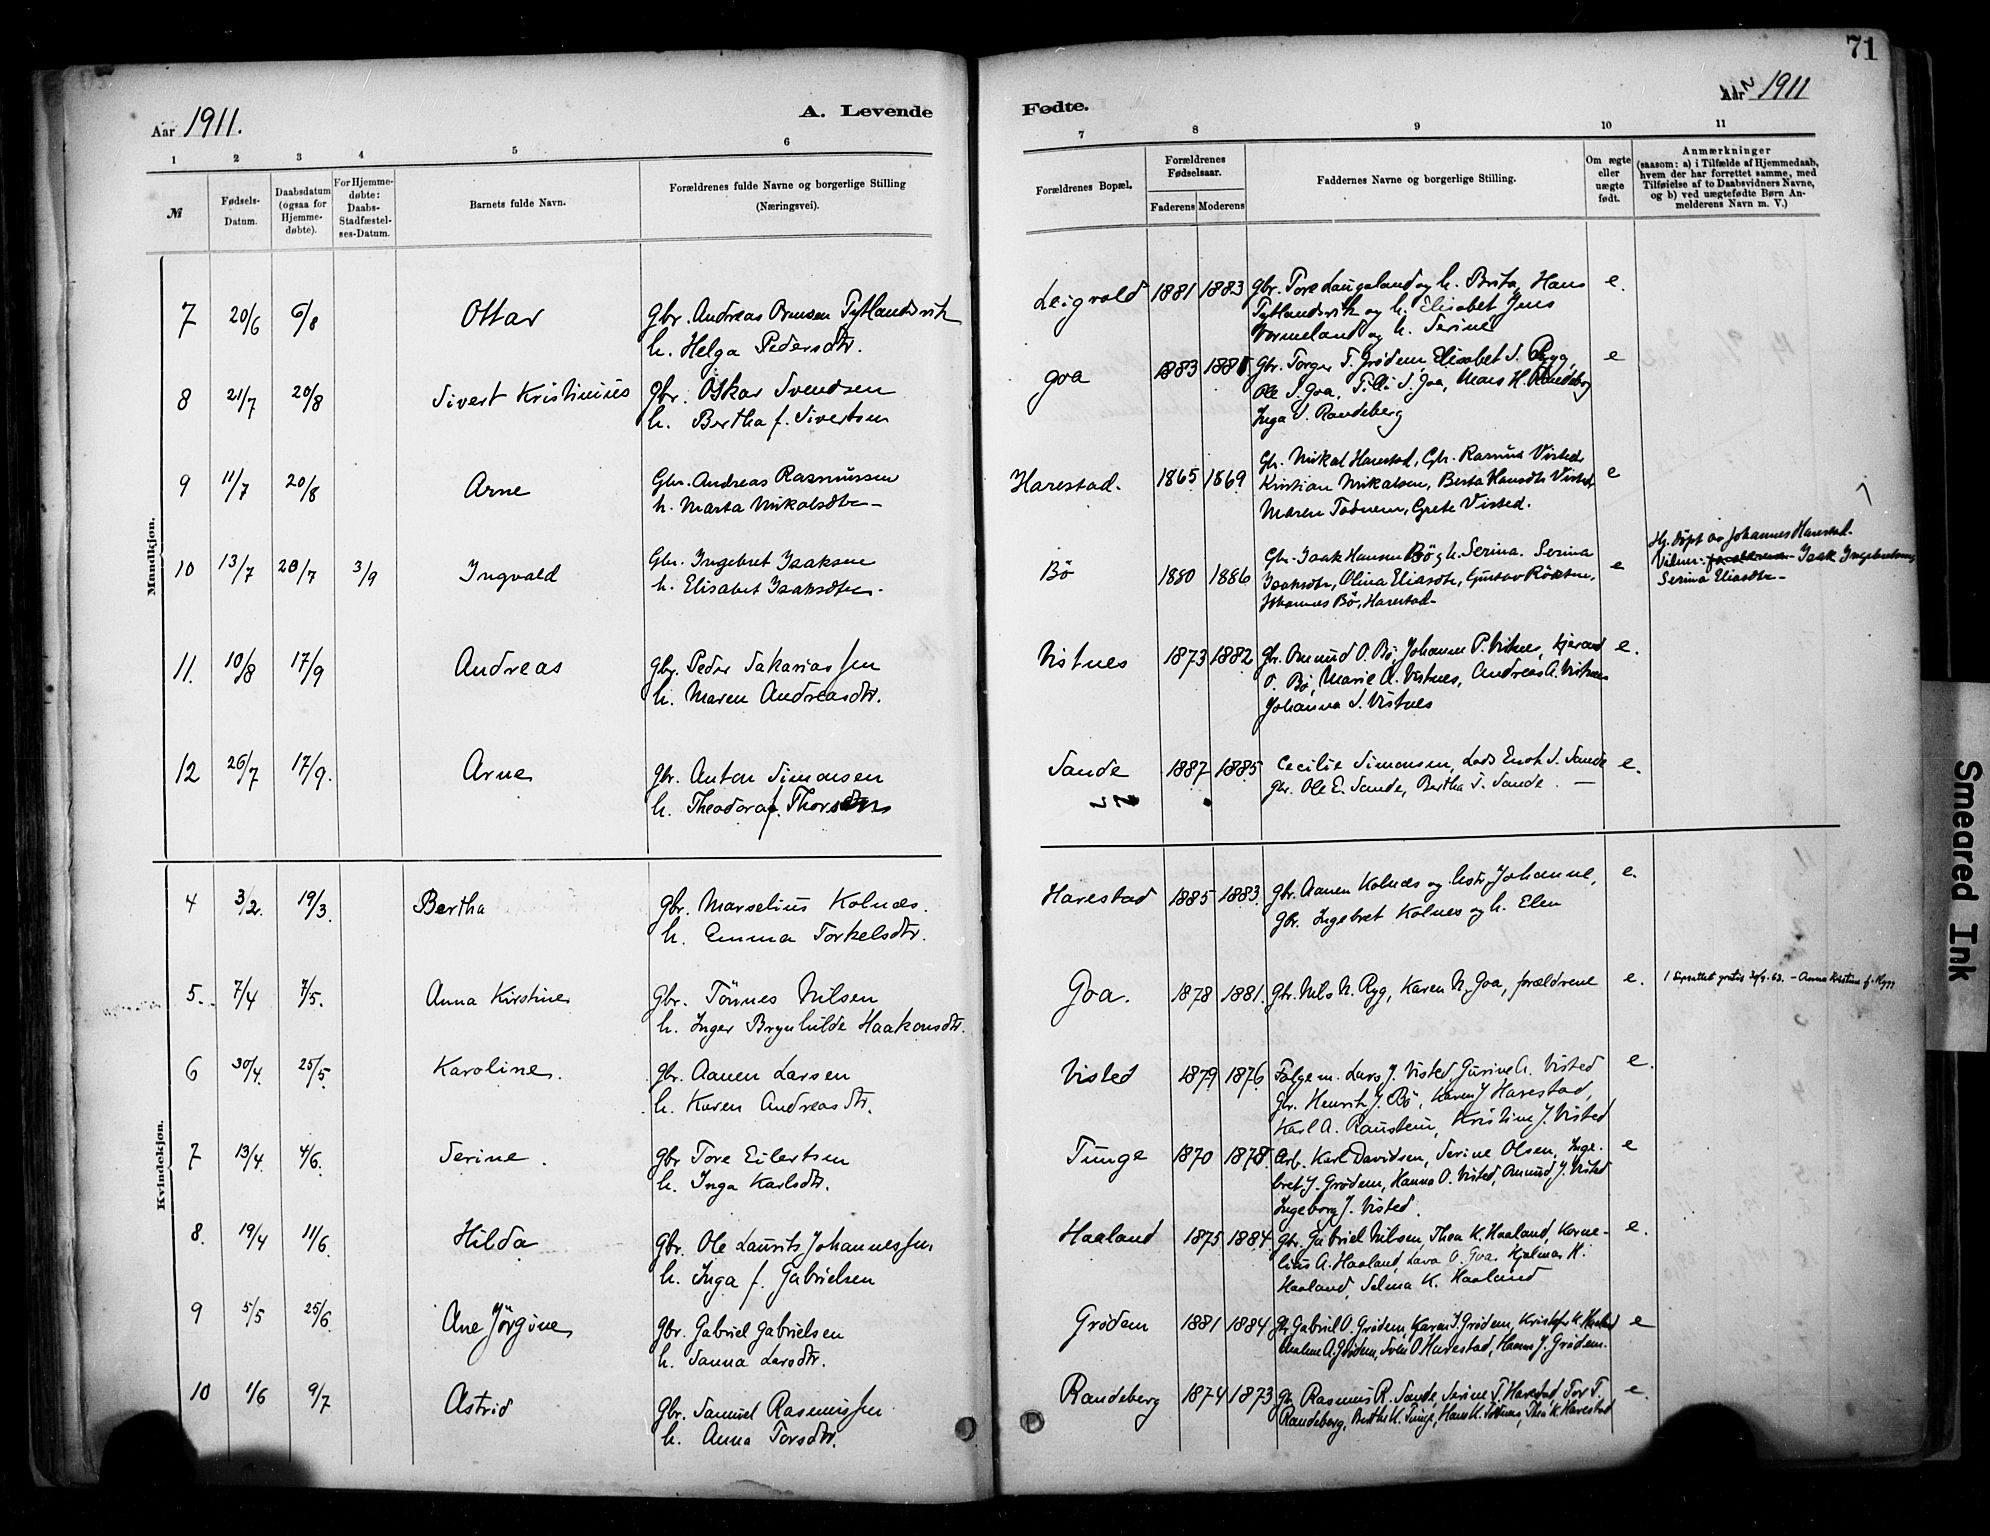 71
Aar 1911.
A. Levende
Fødte.
Aar 1911
1 2 3 4 5 6
7 8 9 10 11
№
Fødsels-
Datum.
Daabsdatum
(ogsaa for
Hjemme-
døbte).
For Hjemme-
døbte:
Daabs-
Stadfæstel-
ses-Datum.
Barnets fulde Navn.
Forældrenes fulde Navne og borgerlige Stilling
(Næringsvei).
Forældrenes Bopæl.
Forældrenes
Fødselsaar.
Faderens Moderens
Faddernes Navne og borgerlige Stilling.
Om ægte
eller
uægte
født.
Anmærkninger
(saasom: a) i Tilfælde af Hjemmedaab,
hvem der har forrettet samme, med
Tilføielse af to Daabsvidners Navne,
og b) ved uægtefødte Børn An-
melderens Navn m. V.)
Mandkjøn.
7 20/6 6/8 Ottar gbr. Andreas Ormsen Tytlandsvik
h. Helga Pedersdtr.
Leigvold 1881 1883 gbr. Tore Laugaland og h. Brita, Hans e.
Tytlandsvik og h. Elisabet Jens
Vormeland og h. Serine
8 21/7 20/8 Sivert Kristinius gbr. Oskar Svendsen
h. Bertha f. Sivertsen
Goa 1883 gbr. Torger T. Grødem, Elisabet S. Ryg, e
Ole S. Goa, S. Goa, Mars H. Randeberg
Inga S. Randeberg
9 11/7 20/8 Arne Gbr. Andreas Rasmussen
h. Marta Mikalsdtr –
Harestad. 1865 1869 Gbr. Mikal Harestad, Gbr. Rasmus Visted, e
Kristian Mikalsen, Berta Hansdtr Visted,
Maren Todnem, Grete Visted.
10 13/7 28/7 3/9 Ingvald Gbr. Ingebret Isaksen
h. Elisabet Isaksdtr.
Bø 1880 1886 Gbr. Isak Hansen Bø, h. Serina. Serina e
Isaksdtr, Olina Eliasdtr, Gustav
Johannes Bø, Harestad –
Hj. døpt av Johannes Harestad.
Vidner: Isak Ingebretsen,
Serina Eliasdtr –
11. 10/8 17/9 Andreas gbr. Peder Sakariassen
h. Maren Andreasdtr.
Vistnes 1873 1882 gbr. Omund O. Bø, Johannes P. Vistnes, e.
O. Bø, Marie A. Vistnes, Andreas A. Vistnes
Johanna S. Vistnes
12 26/7 17/9. Arne gbr. Anton Simonsen
h. Theodora f. Thorsen
Sande 1887 1885 Cecilie Simonsen, Lods Enok S. Sande e.
gbr. Ole E. Sande, Bertha S. Sande. –
Kvindekjøn.
4 3/2. 19/3. Bertha gbr. Marselius Kolnes.
h. Emma Torkelsdtr.
Harestad 1885 1883 gbr. Aanen Kolnes og hstr. Johanne, e.
gbr. Ingebret Kolnes og h. Elen
5. 7/4 7/5. Anna Kirstine gbr. Tønnes Nilsen
h. Inger Brynhilde Haakonsdtr.
Goa. 1878 1881. gbr. Nils N. Ryg, Karen N. Goa, forældrene e.
gratis – Anna Kristine f. Rygg
6 30/4. 25/5. Karoline. gbr. Aanen Larsen
h. Karen Andreasdtr.
Visted 1879 1876 Følgem. Lars J. Visted, Gurine A. Visted e.
gbr. Henrik J. Bø, Karen J Harestad,
Karl A. Raustein, Kristine J. Visted
7 13/4. 4/6. Serine. gbr Tore Eilertsen
h. Inga Karlsdtr.
Tunge 1870 1878. Arb. Karl Davidsen, Serine Olsen, Inge- e
bret J. Grødem, Hanna O. Visted, Omund J. Visted
Ingeborg J. Visted.
8. 19/4 11/6. Hilda gbr. Ole Laurits Johannessen
h. Inga f. Gabrielsen
Haaland 1875 1884. gbr. Gabriel Nilsen, Thea K. Haaland, Korne- e.
lius A. Haaland, Lava O. Goa, Hjalmar K.
Haaland, Selma K. Haaland
9 5/5 25/6. Ane Jörgine gbr. Gabriel Gabrielsen
h. Sanna Larsdtr.
Grødem 1881 1884 gbr. Gabriel O. Grødem, Karen J. Grødem, e
A. Grødem, Sven O Harestad, Hanna J. Grødem.
10 1/6 9/7 Astrid gbr. Samuel Rasmussen
h. Anna Torsdtr.
Randeberg 1874 1873 gbr. Rasmus R. Sande, Serine T. Harestad, Tor T. e.
Randeberg, Berthe K. Tunge, Hans K. Todnes, Thea K. Harestad
Smeared Ink